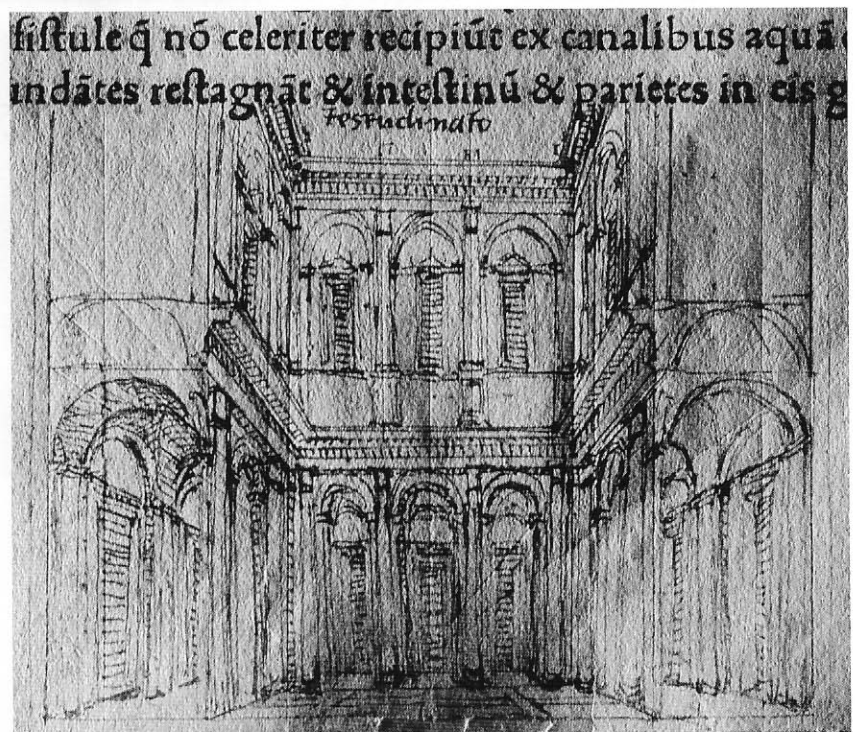 fistule q̃ nõ celeriter recipiũt ex canalibus aquã
undãtes restagnãt & intestinũ & parietes in eis g
testudinato